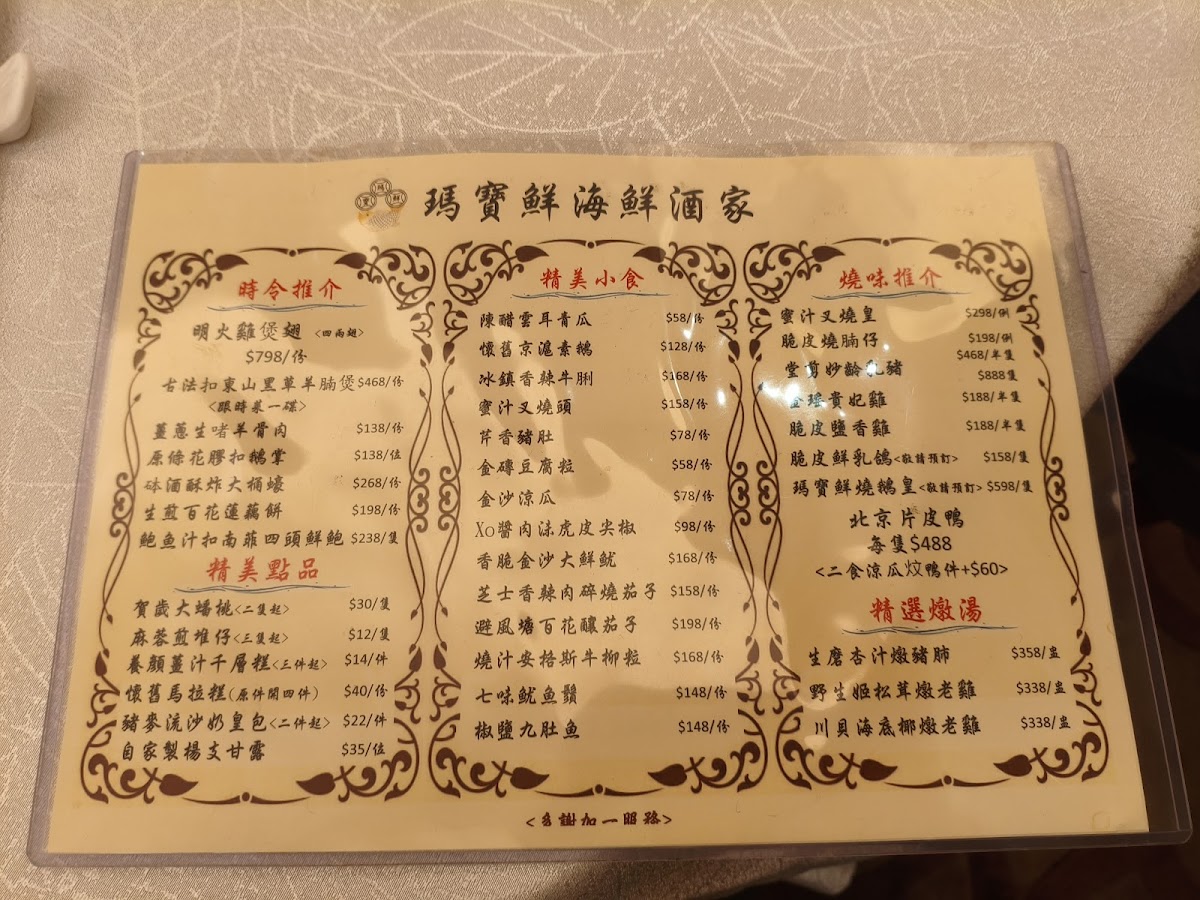 瑪寶鮮海鮮酒家
時令推介
明火雞煲翅 <四兩翅>
$798/份
古法扣東山黑草羊腩煲 $468/份
<跟時菜一碟>
薑蔥生啫羊骨肉 $138/份
原條花膠扣鵝掌 $138/位
砵酒酥炸大桶蠔 $268/份
生煎百花蓮藕餅 $198/份
鮑魚汁扣南菲四頭鮮鮑 $238/隻
精美點品
賀歲大蟠桃<二隻起> $30/隻
麻蓉煎堆仔<三隻起> $12/隻
養顏薑汁千層糕<三件起> $14/件
懷舊馬拉糕(原件開四件) $40/份
豬麥流沙奶皇包<二件起> $22/件
自家製楊支甘露 $35/位
精美小食
陳醋雲耳青瓜 $58/份
懷舊京滬素鵝 $128/份
冰鎮香辣牛脷 $168/份
蜜汁叉燒頭 $158/份
芹香豬肚 $78/份
金磚豆腐粒 $58/份
金沙涼瓜 $78/份
Xo醬肉沫虎皮尖椒 $98/份
香脆金沙大鮮魷 $168/份
芝士香辣肉碎燒茄子 $158/份
避風塘百花釀茄子 $198/份
燒汁安格斯牛柳粒 $168/份
七味魷魚鬚 $148/份
椒鹽九肚魚 $148/份
燒味推介
蜜汁叉燒皇 $298/例
脆皮燒腩仔 $198/例
堂剪妙齡乳豬 $468/半隻
$888隻
金瑤貴妃雞 $188/半隻
脆皮鹽香雞 $188/半隻
脆皮鮮乳鴿<敬請預訂> $158/隻
瑪寶鮮燒鵝皇<敬請預訂> $598/隻
北京片皮鴨
每隻$488
<二食涼瓜炆鴨件+$60>
精選燉湯
生磨杏汁燉豬肺 $358/盅
野生姬松茸燉老雞 $338/盅
川貝海底椰燉老雞 $338/盅
<多謝加一服務>